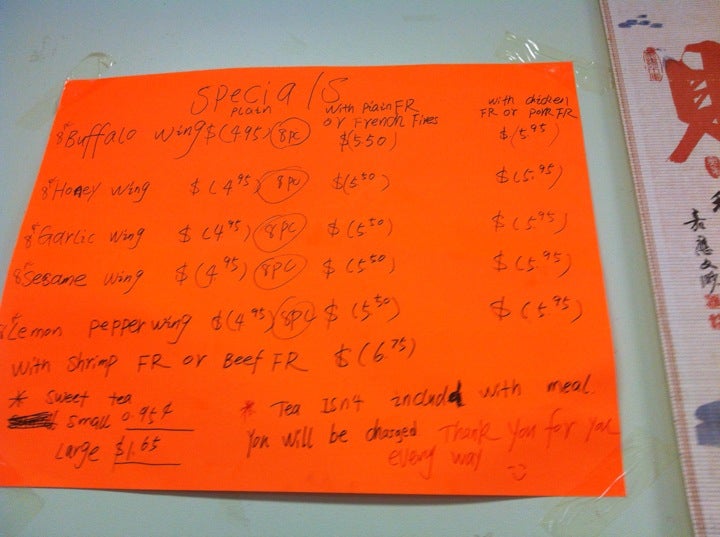 Specials
Plain
With Plain FR or French Fires
with chicken FR or Pork FR
8* Buffalo wing $(4.95) 8pc $(5.50) $(5.95)
8* Honey wing $(4.95) 8pc $(5.50) $(5.95)
8* Garlic wing $(4.95) 8pc $(5.50) $(5.95)
8* Sesame wing $(4.95) 8pc $(5.50) $(5.95)
8* Lemon pepper wing $(4.95) 8pc $(5.50) $(5.95)
with shrimp FR or Beef FR $(6.75)
* Sweet tea
Small 0.95¢
Large $1.65
* Tea Isn4 includd with meal.
You will be charged Thank you for you
every way